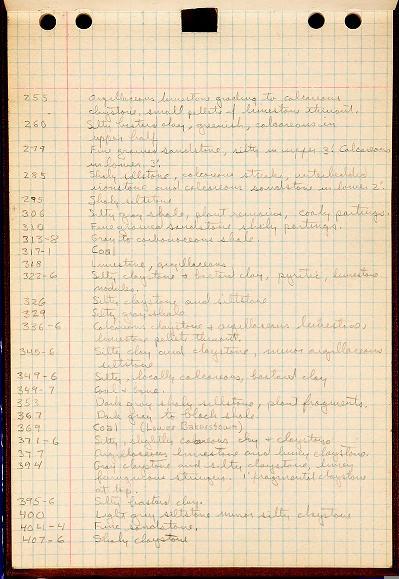 255 Argillaceous limestone grading to calcareous
claystone, small pellets of limestone thruout.
260 Silty bastard clay, greenish, calcareous in
upper half
279 Fine grained sandstone, silty in upper 3', Calcareous
in lower 3'.
285 Shaly siltstone, calcareous streaks, interbedded
ironstone and calcareous sandstone in lower 2'.
295 Shaly siltstone
306 Silty gray shale, plant remains, coaly partings.
310 Fine grained sandstone shaly partings.
313-8 Gray to carbonaceous shale.
317-1 Coal
318 Limestone, argillaceous
322-6 Silty claystone & bastard clay, pyritic, limestone
nodules.
326 Silty claystone and siltstone
329 Silty gray shale
336-6 Calcareous claystone & argillaceous limestone,
limestone pellets thruout.
345-6 Silty clay and claystone, minor argillaceous
siltstone
349-6 Silty, locally calcareous, bastard clay
349-7 Coal &
353 Dark gray shaly siltstone, plant fragments.
367 Dark gray to black shale.
369 Coal (Lower Bakerstown)
371-6 Silty, slightly calcareous clay & claystone
377 Argillaceous limestone and limey claystone.
394 Gray claystone and silty claystone, limey
ferruginous stringers. 1' fragmental claystone
at top.
395-6 Silty bastard clay.
400 Light gray siltstone minor silty claystone
404-4 Fine sandstone.
407-6 Shaly claystone